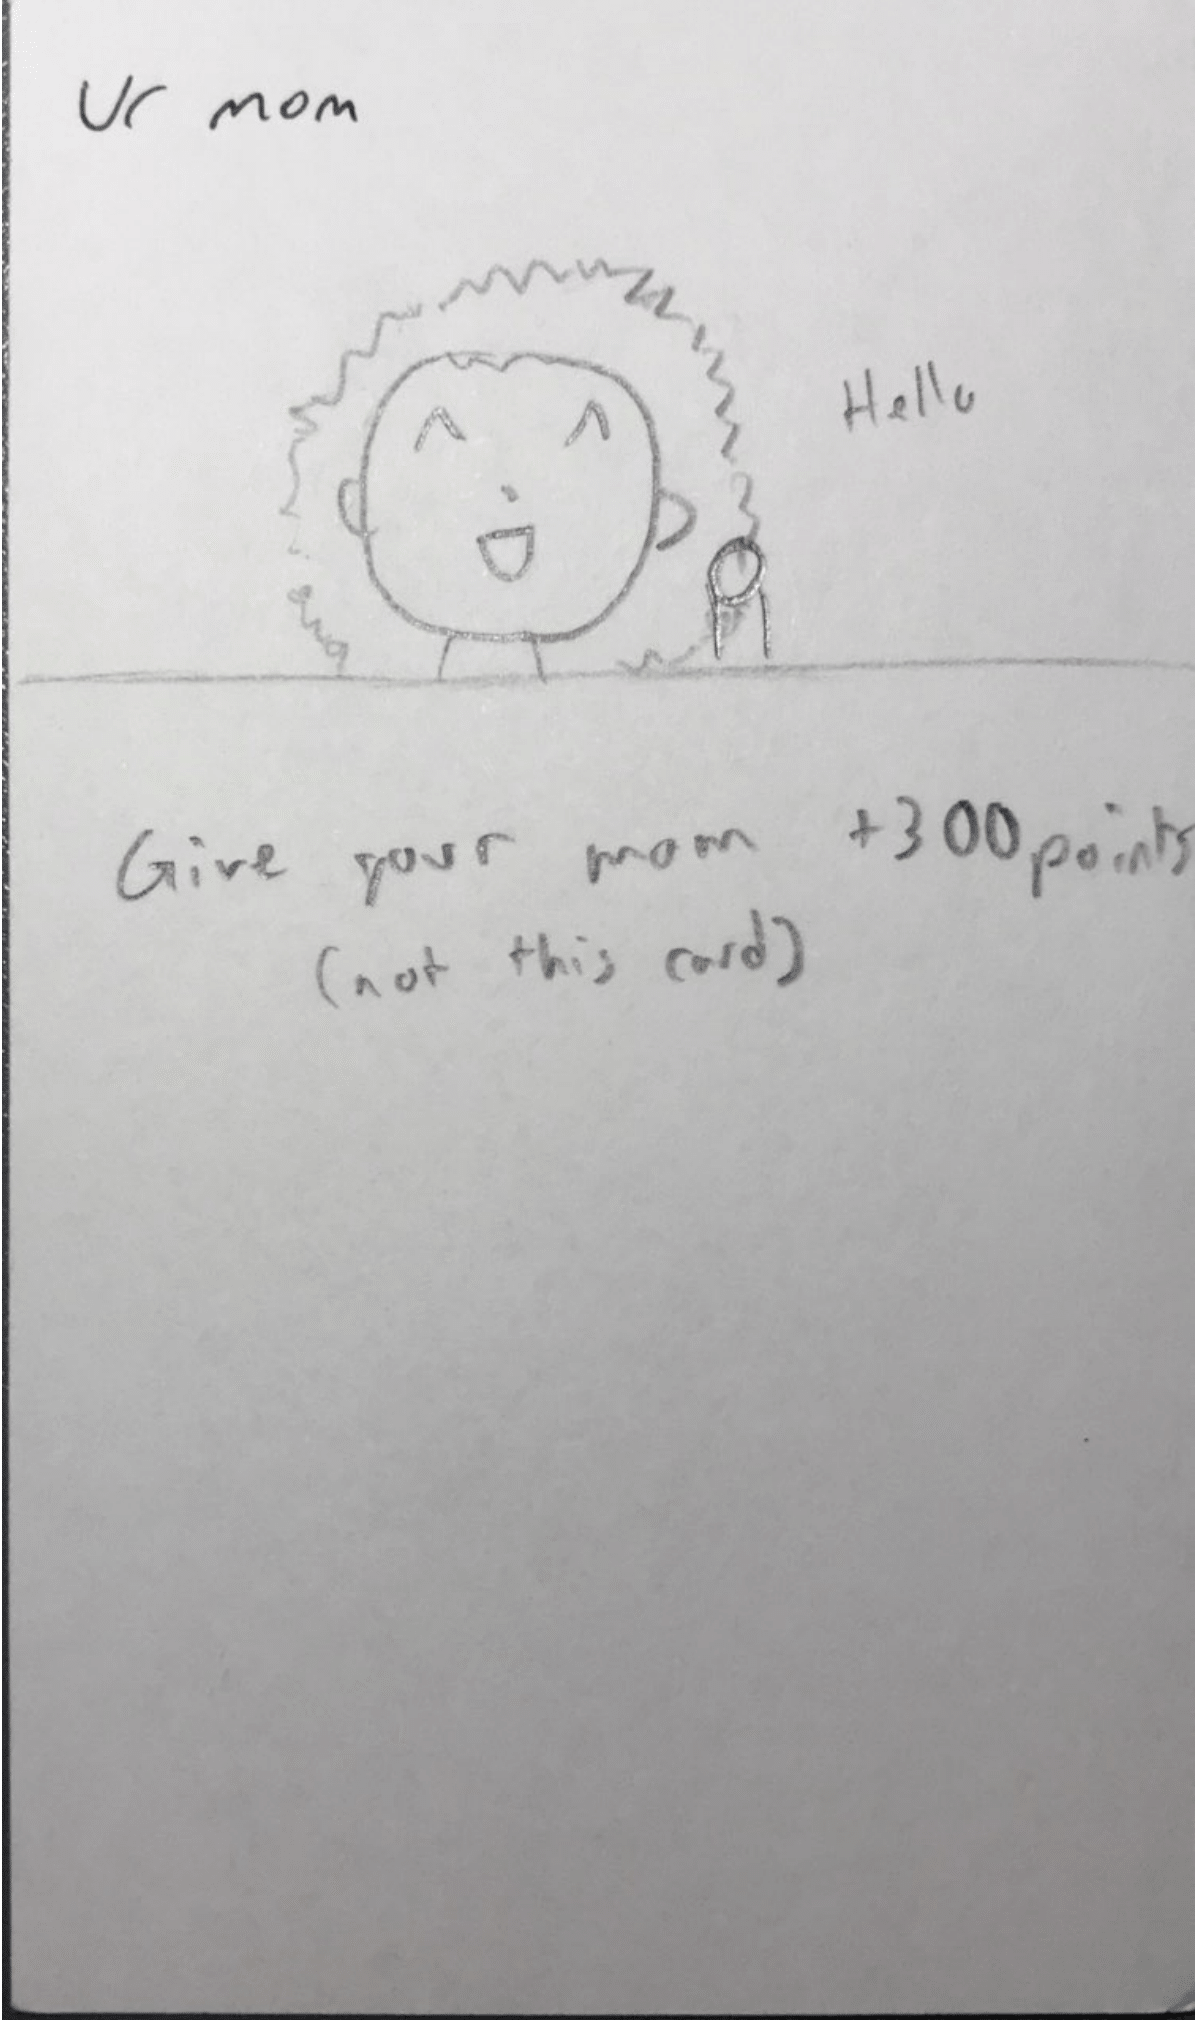 Ur mom
Hello
Give your mom +300 points
(not this card)